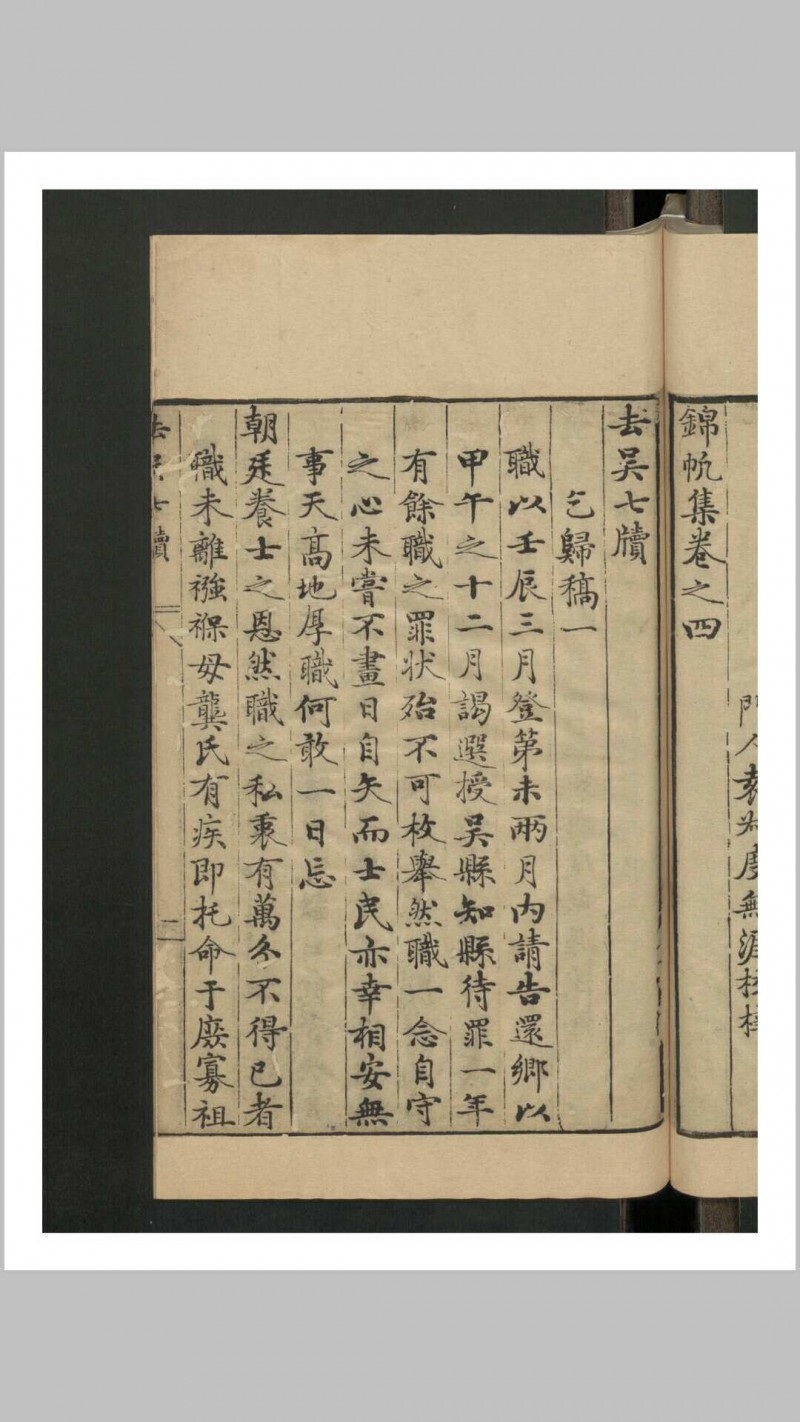 門人袁叔度無涯校梓
錦帆集卷之四
去吳七牘
乞歸稿一
職以壬辰三月登第未兩月內請告還鄉以
甲午之十二月謁選授吳縣知縣待罪一年
有餘職之罪狀殆不可枚舉然職一念自守
之心未嘗不晝日自矢而士民亦幸相安無
事天高地厚職何敢一日忘
朝廷養士之恩然職之私衷有萬分不得已者
職未離襁褓母龔氏有疾即托命于寡祖
去吳七牘